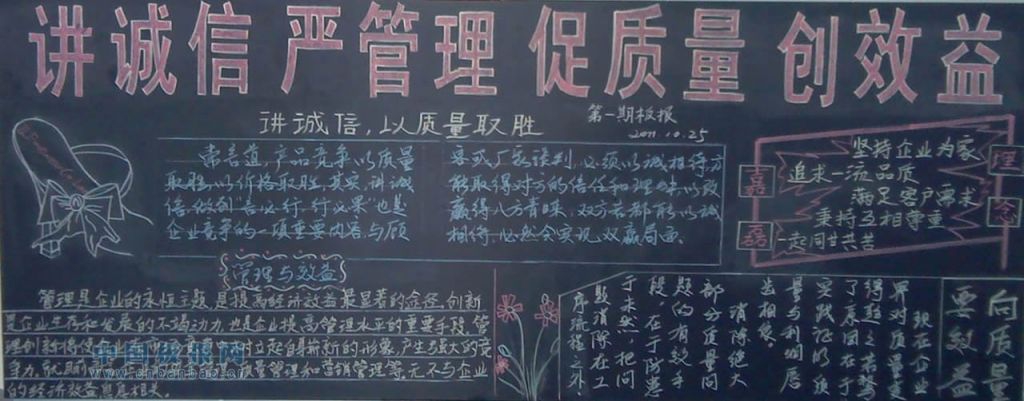 讲诚信 严管理 促质量 创效益
讲诚信,以质量取胜
第一期板报
2011.10.25
常言道,产品竞争以质量
取胜,以价格取胜,其实,讲诚
信,做到"言必行,行必果"也是
企业竞争的一项重要内容,与顾
客或厂家谈判,必须以诚相待方
能取得对方的信任和理
赢得八方青睐,双方若都能以诚
相待,必然会实现双赢局面。
嘉
磊
理
念
坚持企业为家
追求一流品质
满足客户需求
秉持互相尊重
一起同甘共苦
管理与效益
管理是企业的永恒主题,是提高经济效益最显著的途径,创新
是企业生存和发展的不竭动力,也是企业提高管理水平的重要手段,管
理创新将使企业
树立起自身崭新的形象,产生强大的竞
争力
质量管理和营销管理等,无不与企业
的经济效益息息相关。
中国板报网
www.cnbanbao.cn
向质量
要效益
现在企业
界对质量是
实践证明,质
量与利润息
息相关。
消除绝大
部分质量问
题的有效手
段,在于防患
于未然,把问
题消除在工
序流程之外。